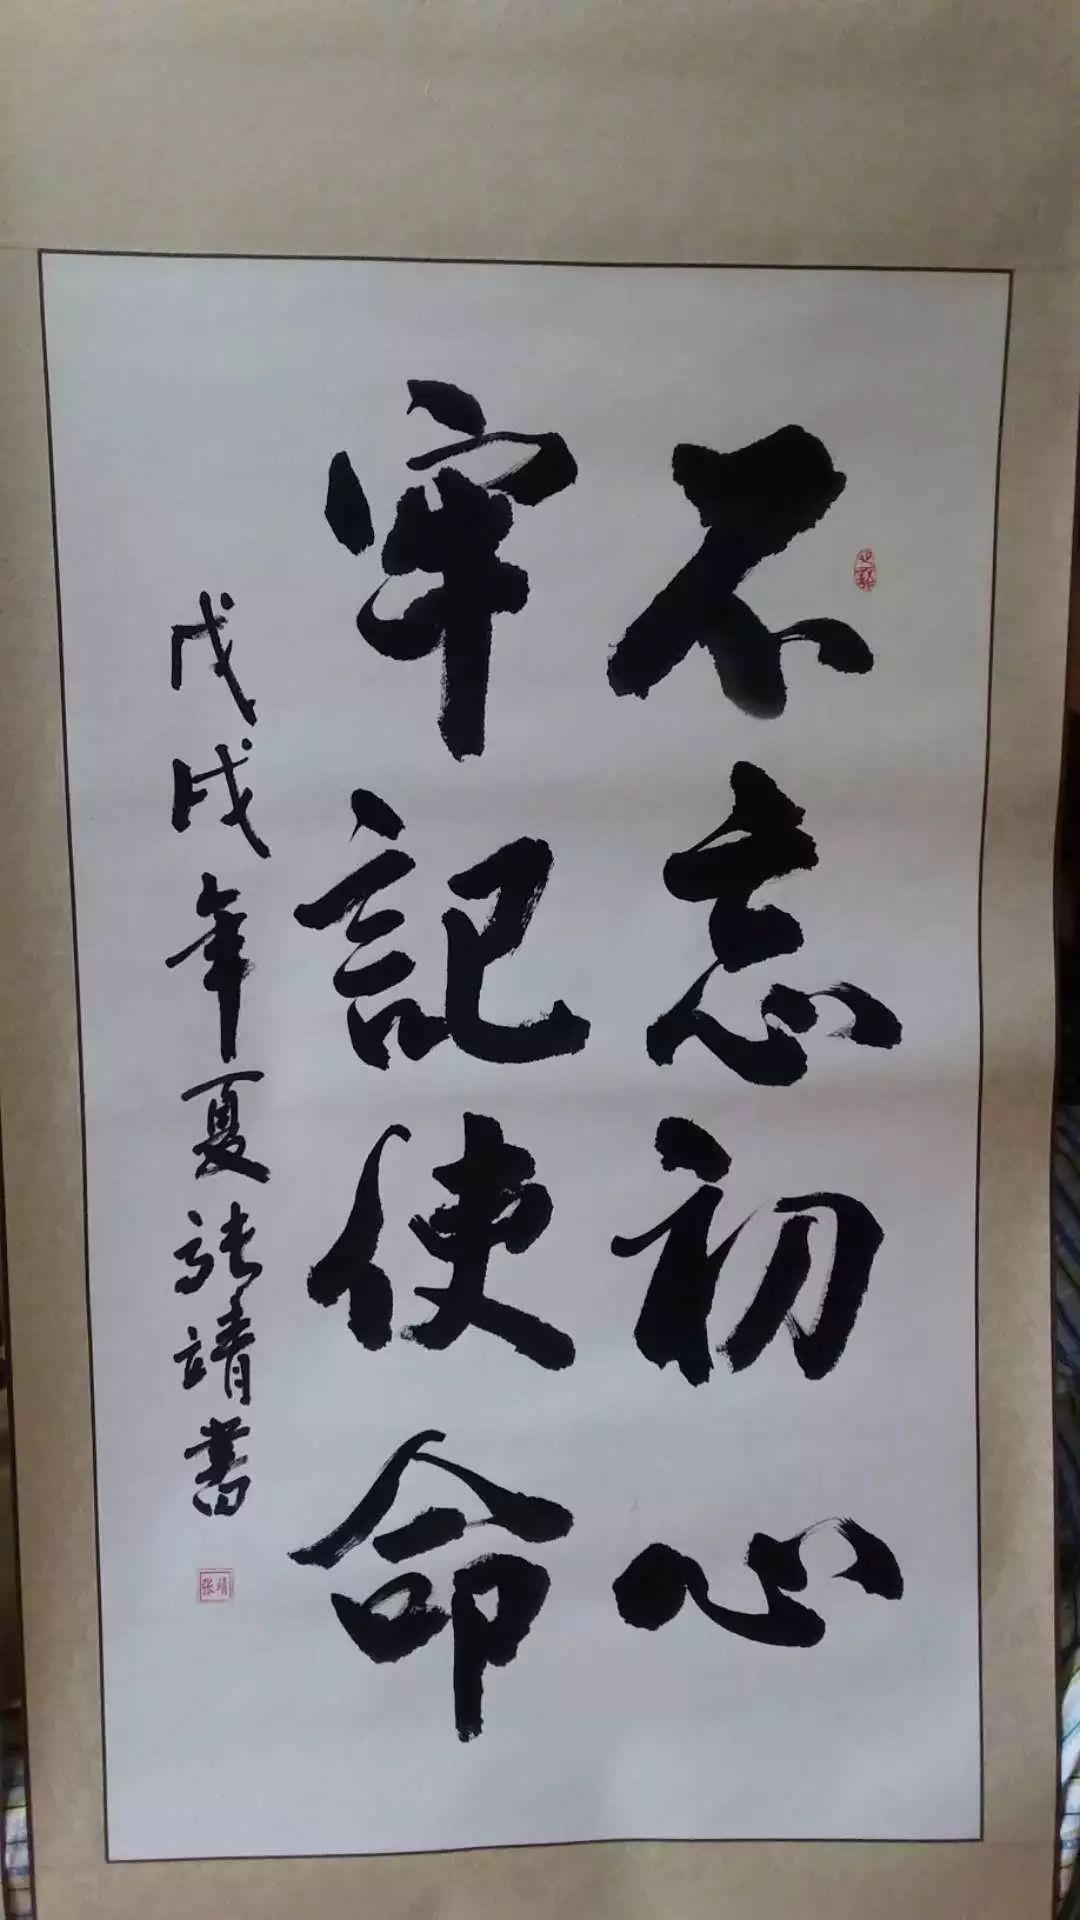 不忘初心
牢記使命
戊戌年夏張靖書
张靖